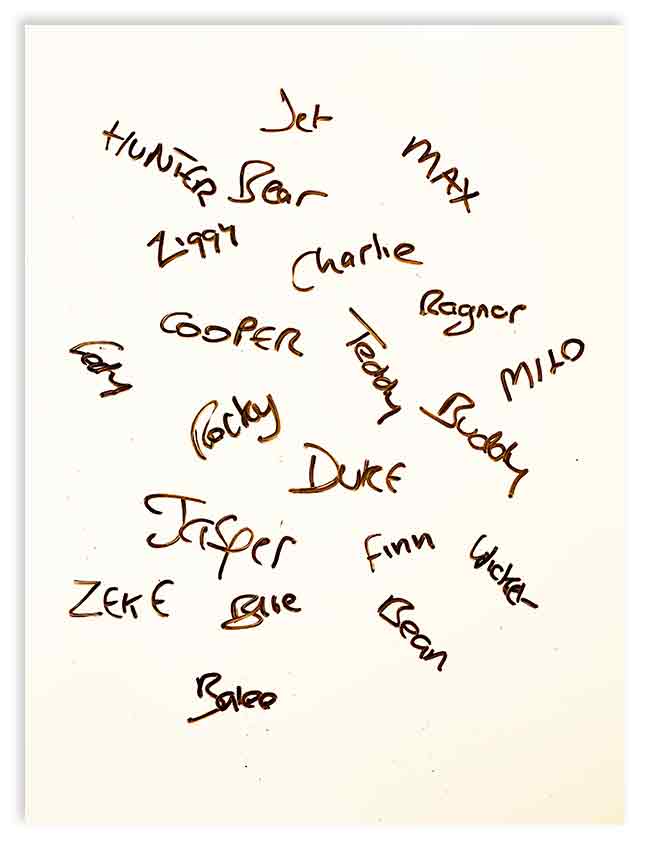 Jet
HUNTER
Bear
MAX
Ziggy
Charlie
Ragnar
COOPER
Teddy
MILO
Rocky
Buddy
DUKE
Jasper
Finn
ZEKE
Blue
Bean